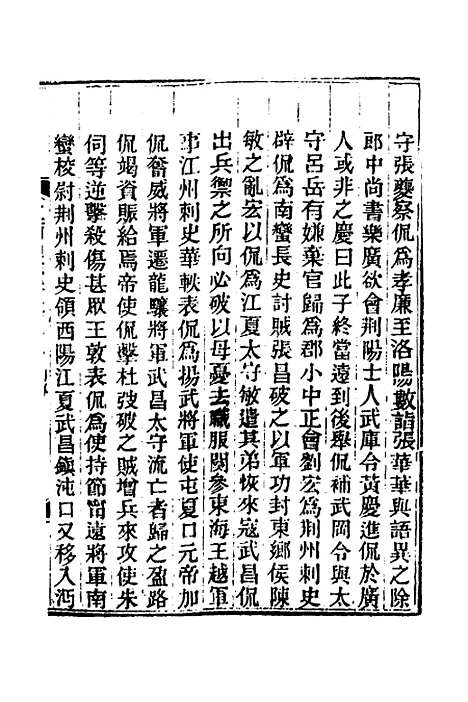 守張夔察侃爲孝廉至洛陽數詣張華華與語異之除
郎中尚書樂廣欲會荆陽士人武庫令黃慶進侃於廣
人或非之慶曰此子終當遠到後舉侃補武岡令與太
守呂岳有嫌棄官歸爲郡小中正會劉宏爲荆州刺史
辟侃爲南蠻長史討賊張昌破之以軍功封東鄉侯陳
敏之亂宏以侃爲江夏太守敏遣其弟恢來寇武昌侃
出兵禦之所向必破以母憂去職服闋參東海王越軍
事江州刺史華軼表侃爲揚武將軍使屯夏口元帝加
侃奮威將軍遷龍驤將軍武昌太守流亡者歸之盈路
侃竭資賑給焉帝使侃擊杜弢破之賊增兵來攻使朱
伺等逆擊殺傷甚眾王敦表侃爲使持節甯遠將軍南
蠻校尉荆州刺史領西陽江夏武昌鎮沌口又移入沔